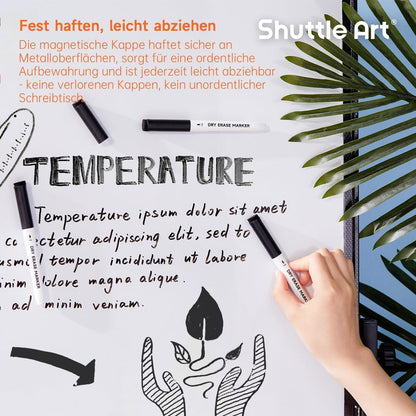 Shuttle Art®
Fest haften, leicht abziehen
Die magnetische Kappe haftet sicher an
Metalloberflächen, sorgt für eine ordentliche
Aufbewahrung und ist jederzeit leicht abziehbar
- keine verlorenen Kappen, kein unordentlicher
Schreibtisch
DRY ERASE MARKER
TEMPERATURE
Temperature ipsum dolor sit amet
ctetur adipiscing elit, sed to
usmod tempor incididunt ut labore
inim dolore magna alique.
ad minim veniam.
DRY ERASE MARKER
DRY ERASE MARKER